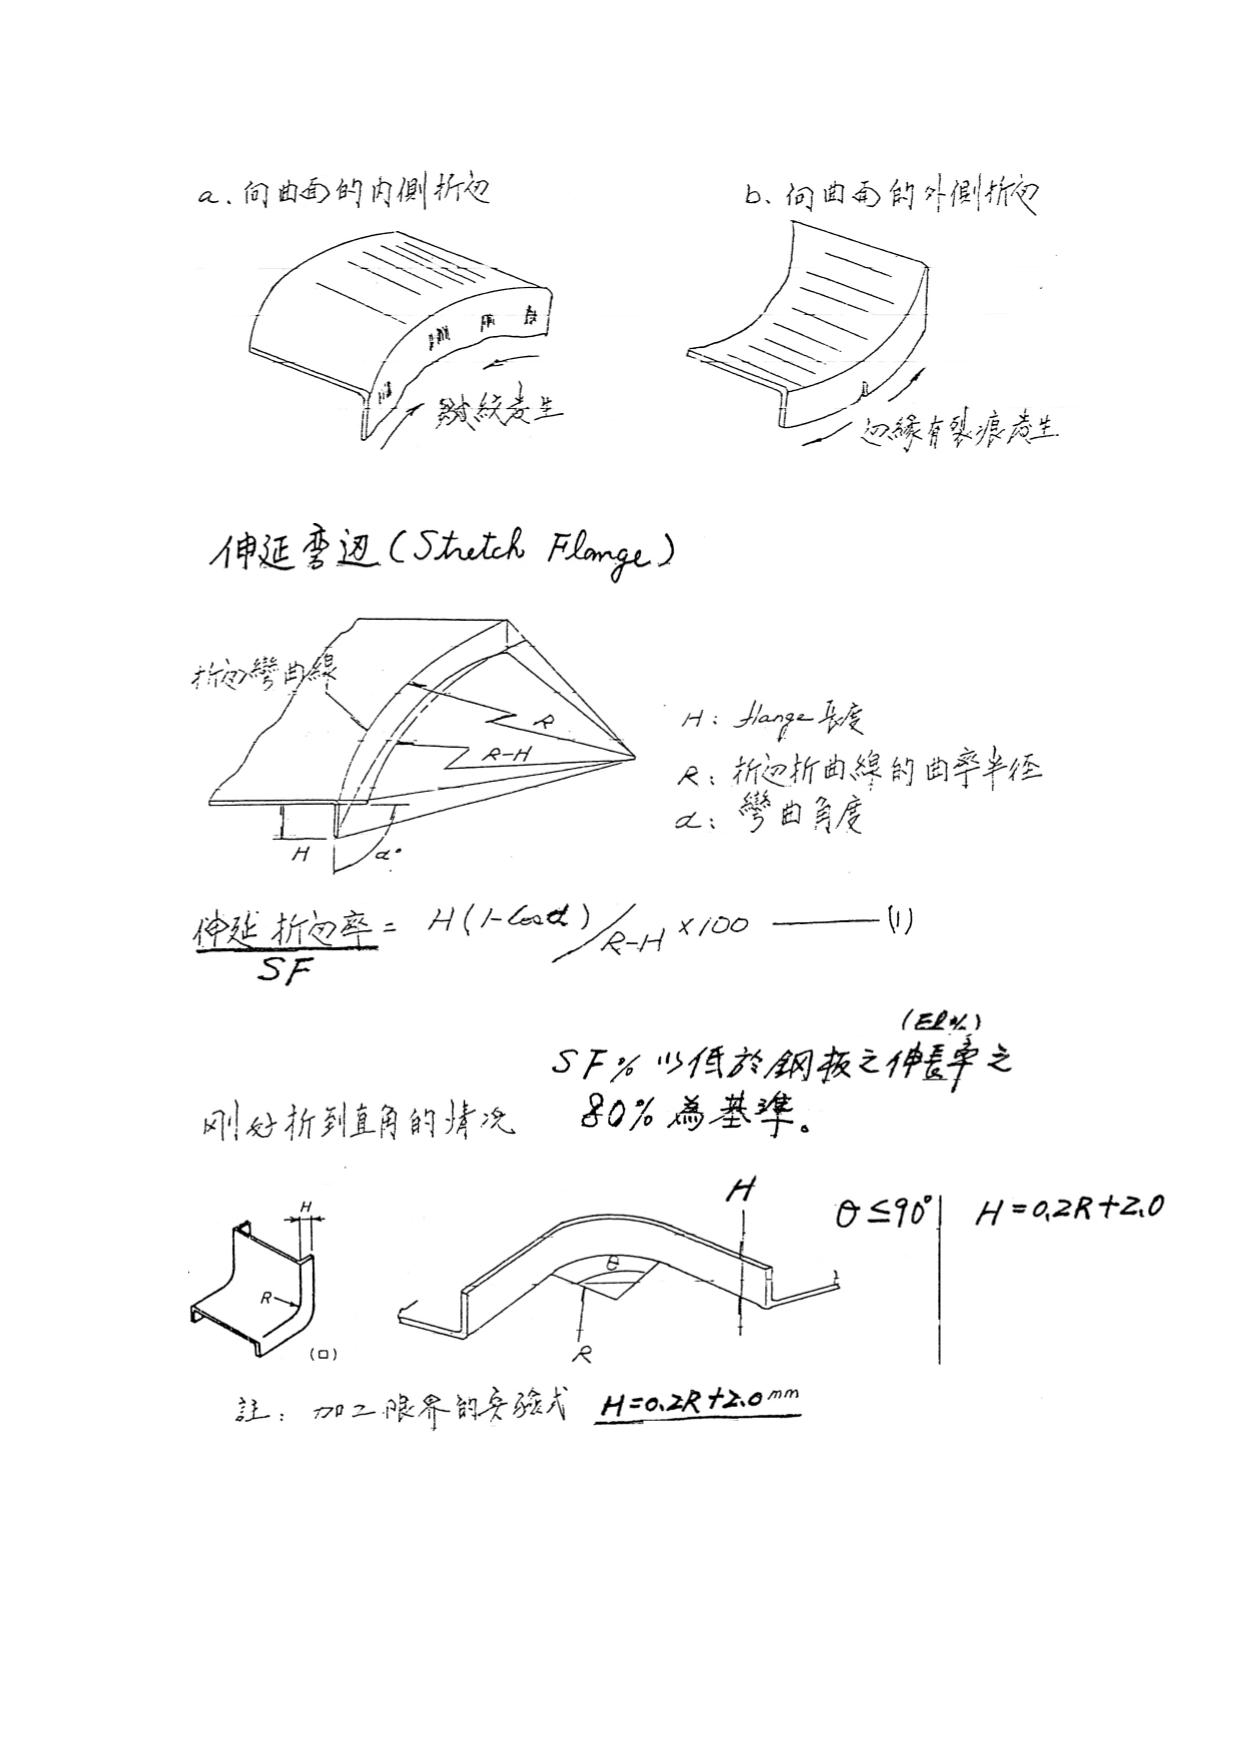 a. 向曲面的内側折边
b. 向曲面的外側折边
皺紋產生
边緣有裂痕產生
伸延弯边 (Stretch Flange)
折边彎曲線
R
R-H
H
α°
H: flange 長度
R: 折边折曲線的曲率半径
α: 彎曲角度
伸延折边率 = H(1-Cosα) / R-H ×100 ——— (1)
SF
(El%)
SF% 以低於鋼板之伸長率之
80% 為基準。
刚好折到直角的情况
H
R
(ロ)
H
θ
R
θ≤90° H=0.2R+2.0
註: 加工限界的实驗式 H=0.2R+2.0mm